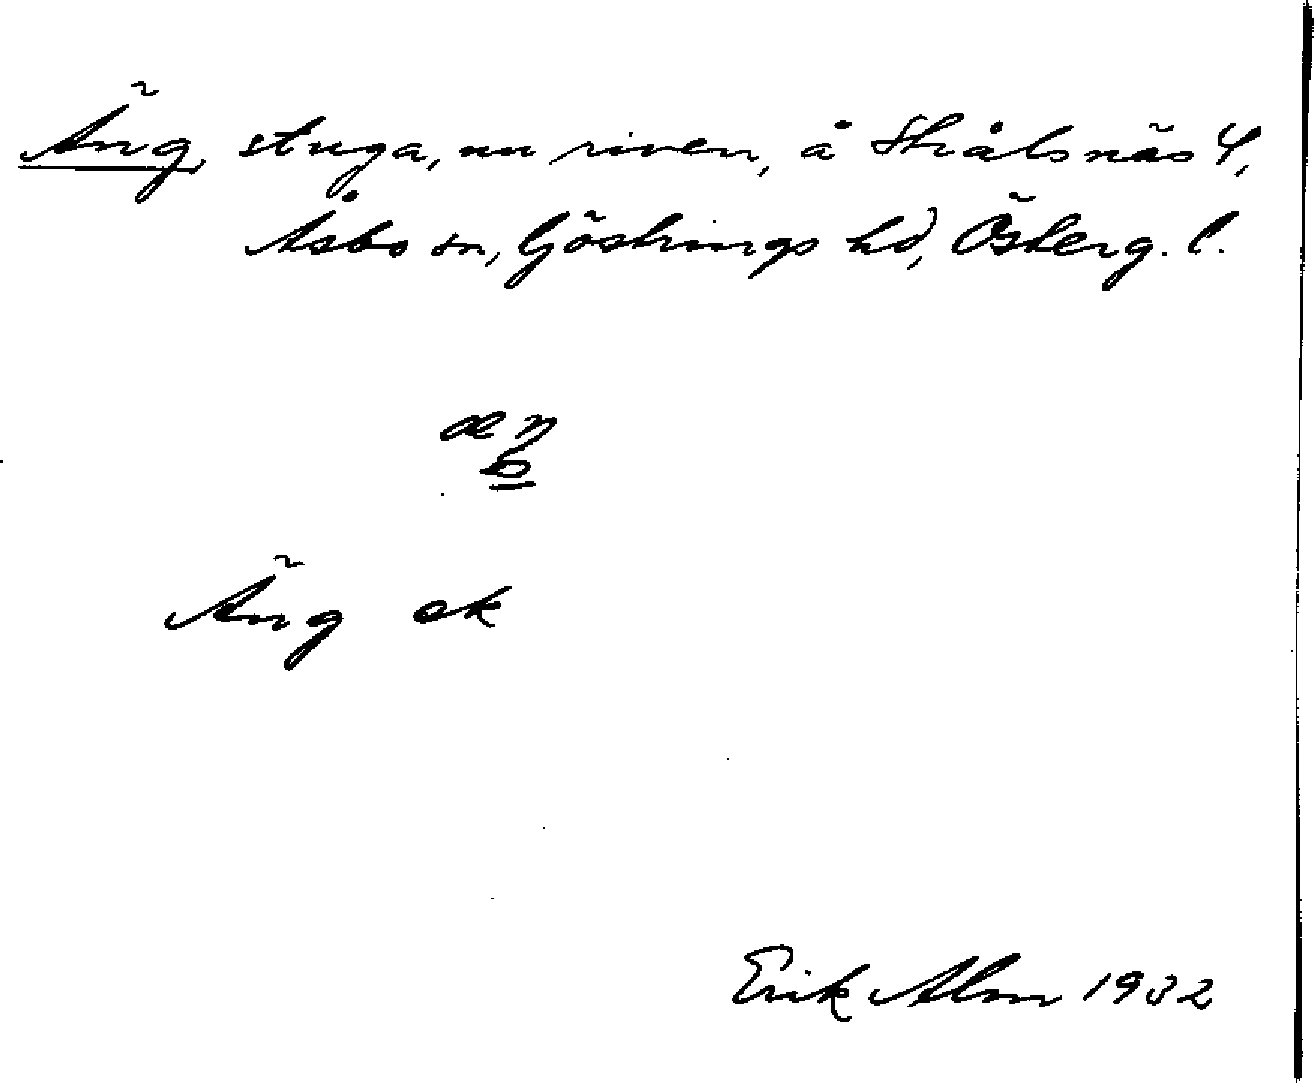 Äng, stuga, nu riven, å Strålsnäs 4,
Åsbo sn, Göstrings hd, Österg. l.
æŋ
Äng ek
Erik Alm 1932